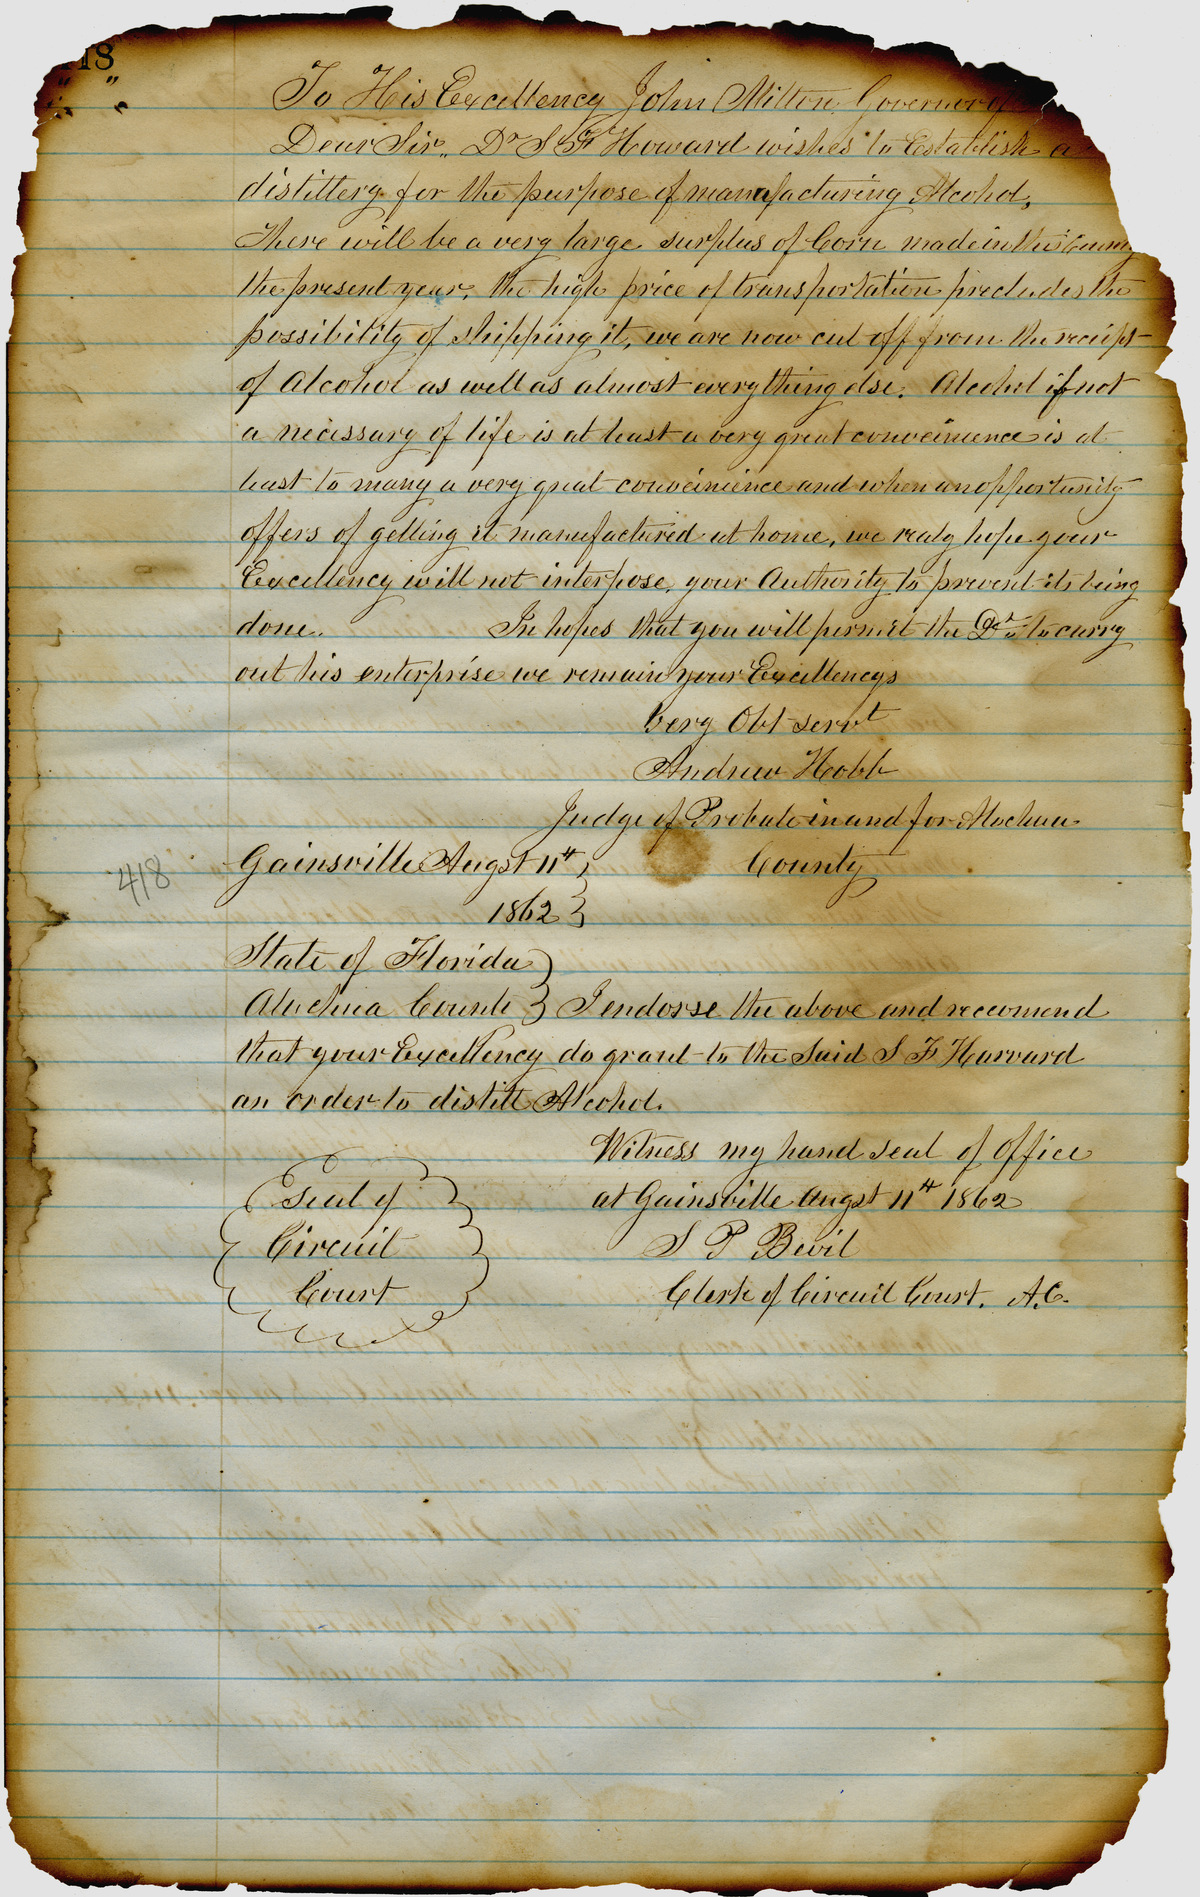 18
" "
To His Excellency John Milton Governor of
Dear Sir,, Dr S F Howard wishes to Establish a
distillery for the purpose of manufacturing Alcohol,
There will be a very large surplus of Corn made in the County
the present year, the high price of transportation precludes the
possibility of shipping it, we are now cut off from the reciept
of Alcohol as well as almost everything else. Alcohol if not
a necessary of life is at least a very great conveinience is at
least to many a very great conveinience and when an opportunity
offers of getting it manufactured at home, we realy hope your
Excellency will not interpose, your Authority to prevent its being
done. In hopes that you will permit the Dr to carry
out his enterprise we remain your Excellencys
Very Obt servt
Andrew Hobb
Judge of Probate in and for Alachua
Gainsville Augst 11th County
418
1862
State of Florida
Alachua County I endorse the above and reccomend
that your Excellency do grant to the Said S F Harvard
an order to distill Alcohol.
Witness my hand seal of office
Seal of at Gainsville Augst 11th 1862
Circuit S P Bevil
Court Clerk of Circuit Court. A.C.